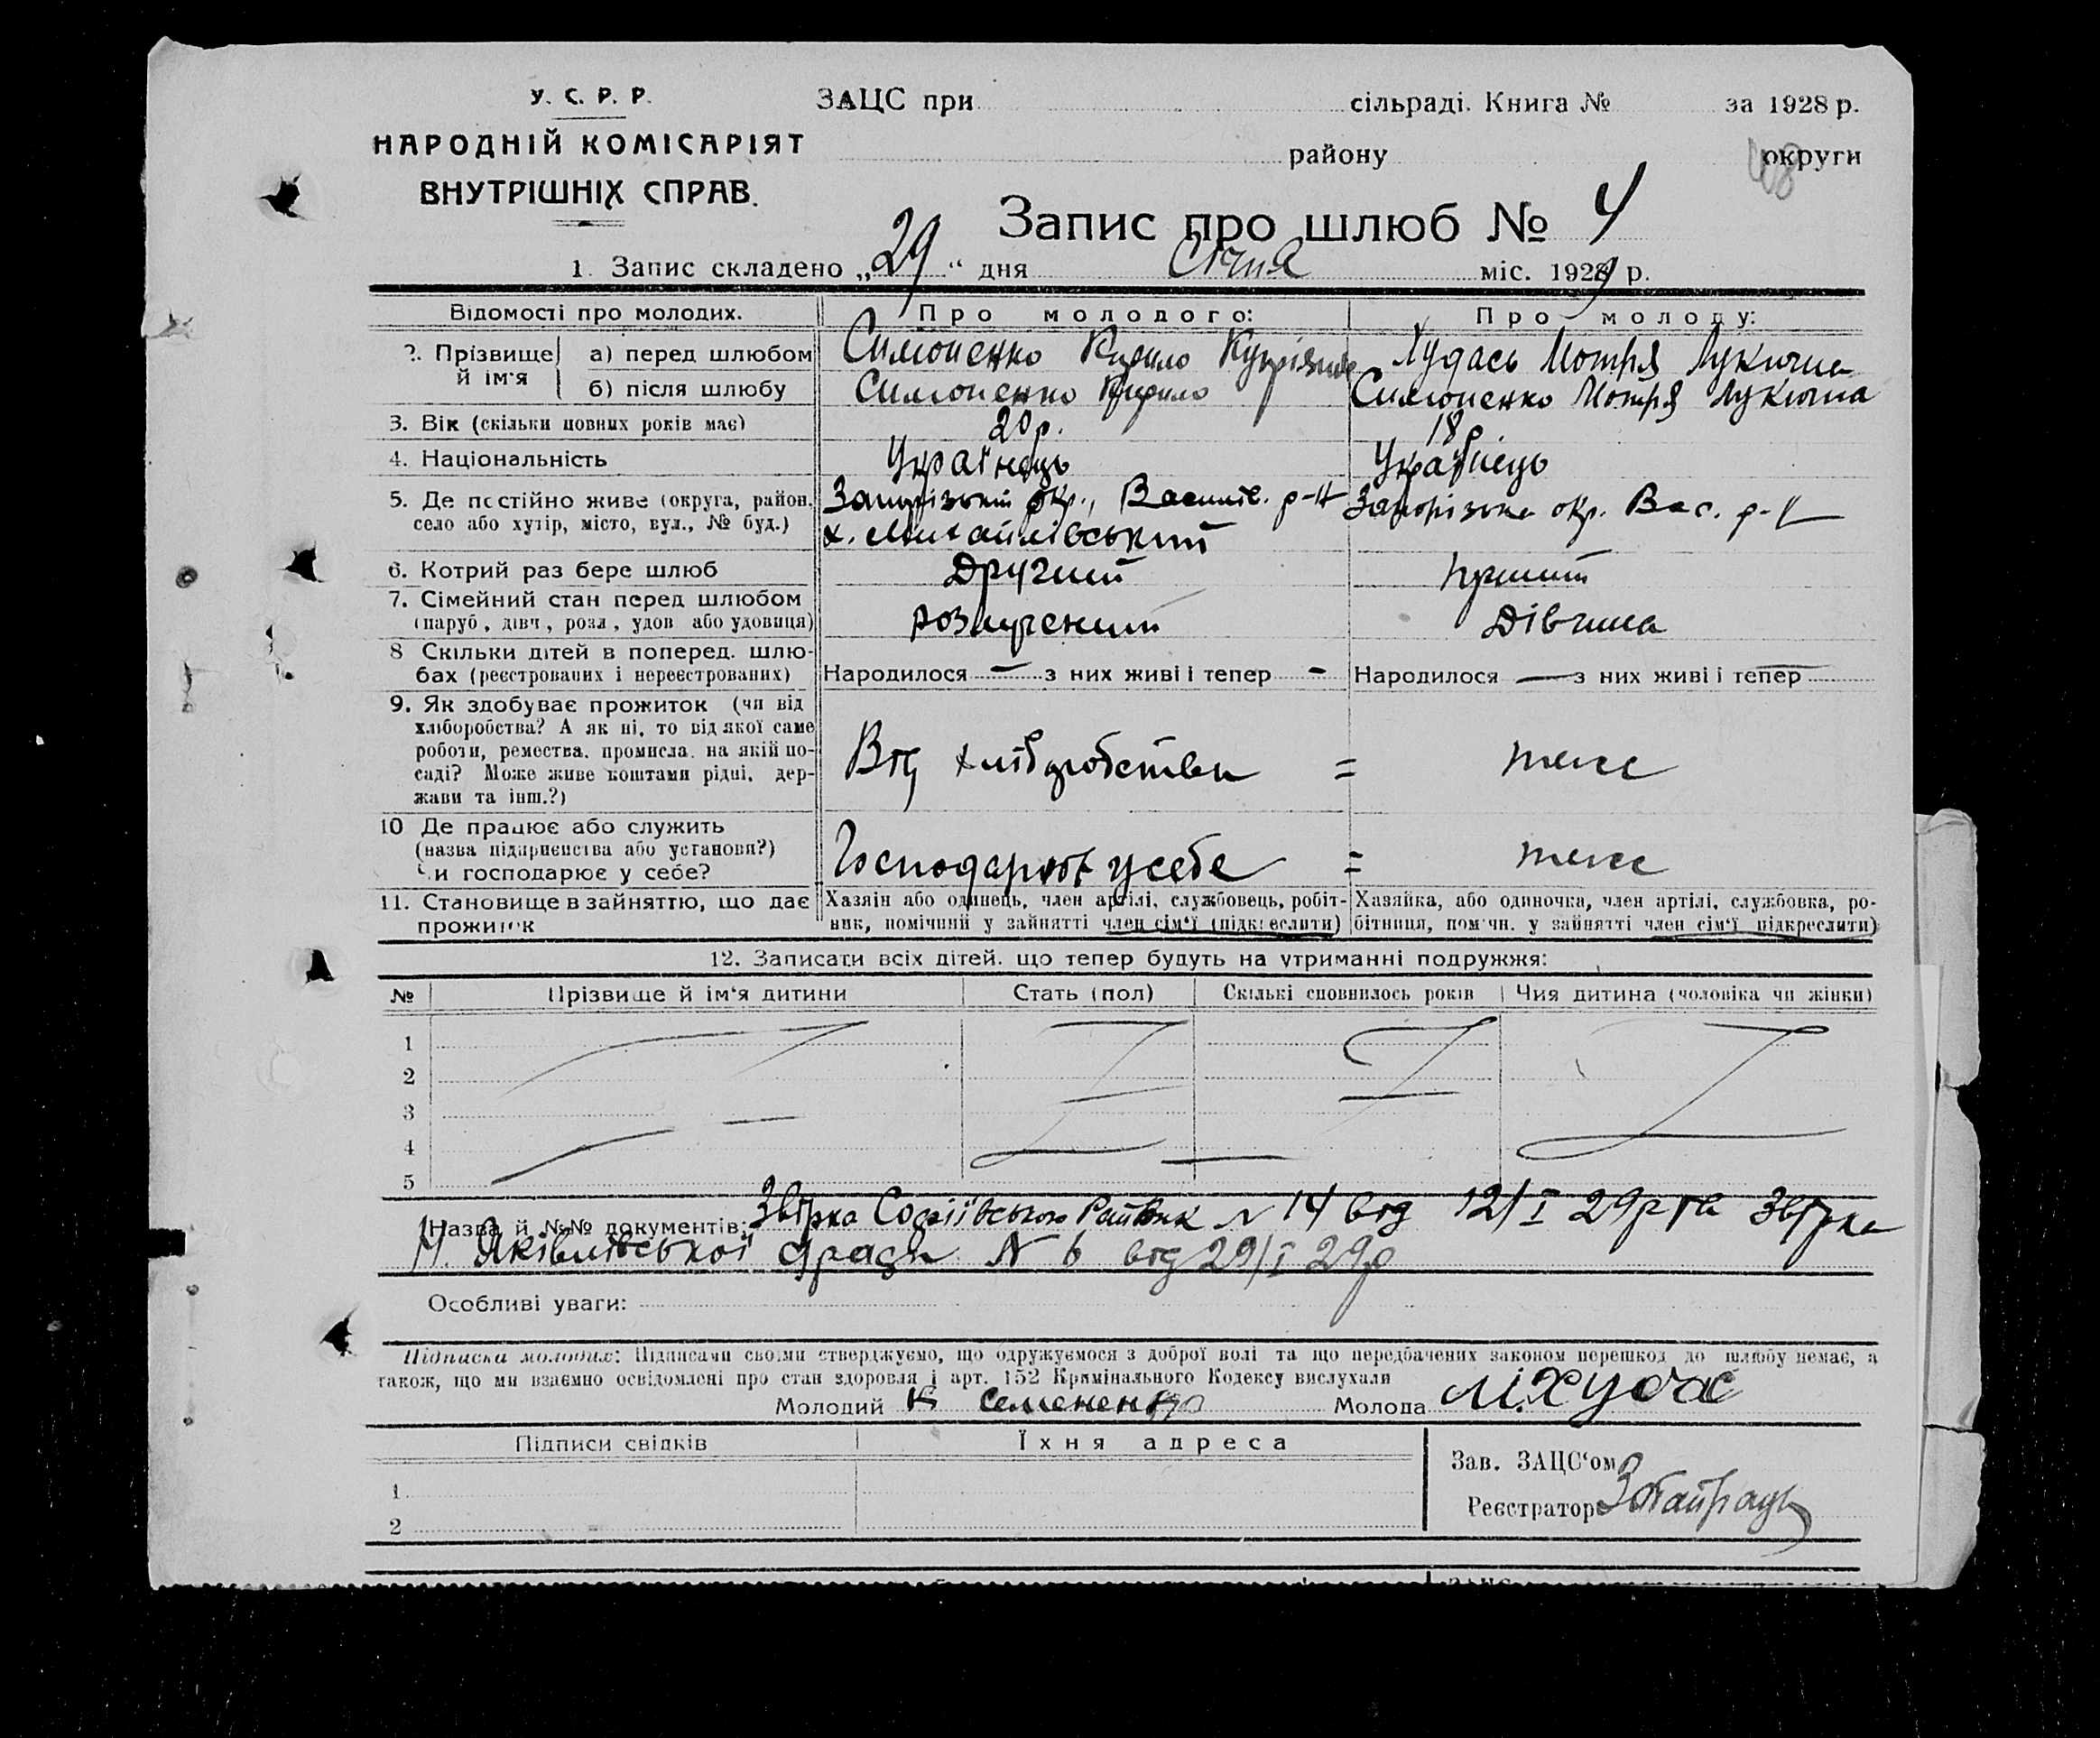 У. С. Р. Р.
НАРОДНІЙ КОМІСАРІЯТ
ВНУТРІШНІХ СПРАВ.
ЗАЦС при сільраді. Книга № за 1928 р.
району округи
48
Запис про шлюб № 4
1. Запис складено „29“ дня Січня міс. 1929 р.
Відомості про молодих. Про молодого: Про молоду:
2. Прізвище й ім'я а) перед шлюбом Симоненко Кирило Худась Мотря Лукична
б) після шлюбу Симоненко Кирило Симоненко Мотря Лукична
3. Вік (скільки повних років має) 20 р. 18 р
4. Національність Українець Українець
5. Де постійно живе (округа, район, Запорізький окр., Василів. р-н Запорізька окр. Вас. р-н
село або хутір, місто, вул., № буд.) х. Михайлівський
6. Котрий раз бере шлюб Другий перший
7. Сімейний стан перед шлюбом розлучений Дівчина
(паруб., дівч., розл., удов або удовиця)
8 Скільки дітей в поперед. шлю-
бах (реєстрованих і нереєстрованих) Народилося — з них живі і тепер - Народилося — з них живі і тепер —
9. Як здобуває прожиток (чи від
хліборобства? А як ні, то від якої саме
роботи, ремества, промисла, на якій по- Від хліборобства = теже
саді? Може живе коштами рідні, дер-
жави та інш.?)
10 Де працює або служить
(назва підприємства або установи?) Господарює у себе = теже
Чи господарює у себе?
11. Становище в зайняттю, що дає Хазяїн або одинець, член артілі, службовець, робіт- Хазяйка, або одиночка, член артілі, службовка, ро-
прожиток ник, помічний у зайнятті член сім'ї (підкреслити) бітниця, пом'чн. у зайнятті член сім'ї підкреслити)
12. Записати всіх дітей, що тепер будуть на утриманні подружжя:
№ Прізвище й ім'я дитини Стать (пол) Скількі сповнилось років Чия дитина (чоловіка чи жінки)
1
2
3
4
5
Назва й №№ документів: Звірка Софіївського № 14 від 12/I 29р та Звірка
Н. Яківлівської с/ради N 6 від 29/I 29р
Особливі уваги:
Підписка молодих: Підписами своїми стверджуємо, що одружуємося з доброї волі та що передбачених законом перешкод до шлюбу немає, а
також, що ми взаємно освідомлені про стан здоровля і арт. 152 Кримінального Кодексу вислухали
Молодий К Семененко Молода М.Худас
Підписи свідків Їхня адреса
Зав. ЗАЦС'ом
Реєстратор
1
2